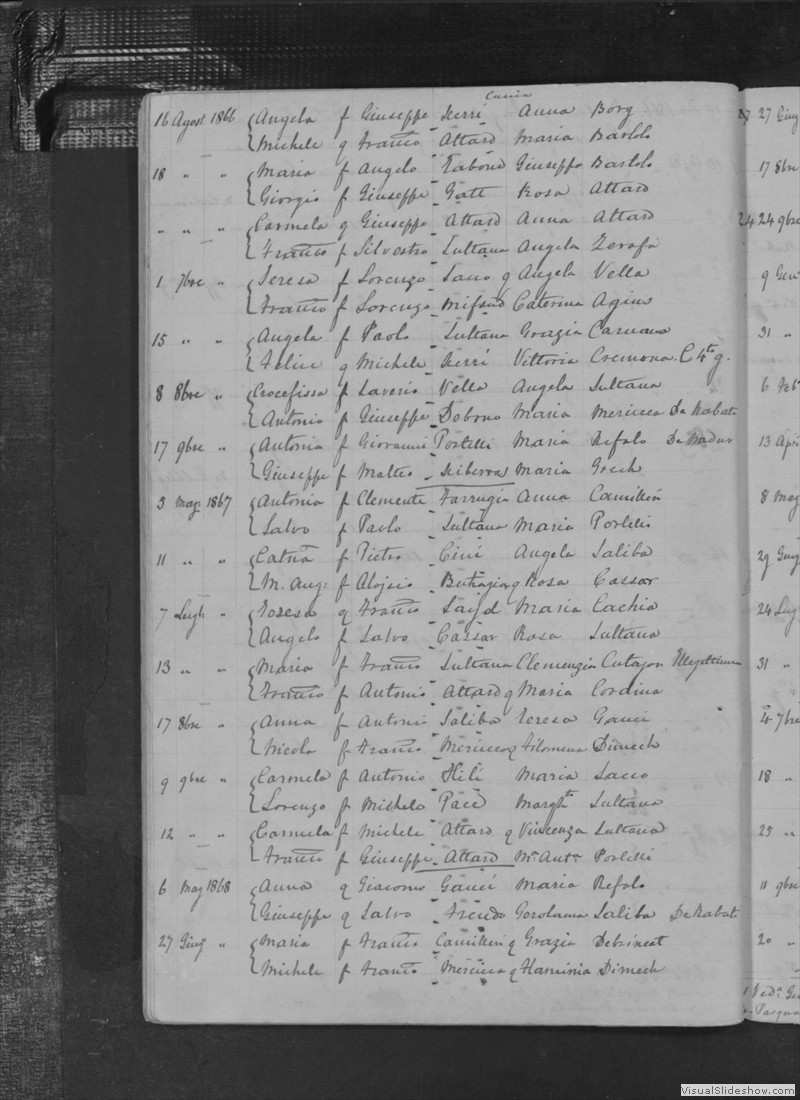 Cassia
16 Agost 1866 Angela f Giuseppe Xerri Anna Borg
Michele q Franco Attard Maria Bartolo
18 " " Maria f Angelo Tabone Giuseppa Bartolo
Giorgio f Giuseppe Gatt Rosa Attard
" " " Carmela q Giuseppe Attard Anna Attard
Franco f Silvestro Sultana Angela Zerafa
1 7bre " Teresa f Lorenzo Sacco q Angela Vella
Franco f Lorenzo Mifsud Caterina Agius
15 " " Angela f Paolo Sultana Grazia Caruana
Felice q Michele Xerri Vittoria Cremona C 4to g.
8 8bre " Crocefissa f Saverio Vella Angela Sultana
Antonio f Giuseppe Debono Maria Mericca De Rabato
17 9bre " Antonia f Giovanni Portelli Maria Refalo De Nadur
Giuseppe f Matteo Xiberra Maria Grech
3 Mag: 1867 Antonia f Clemente Farrugia Anna Camilleri
Salvo f Paolo Sultana Maria Portelli
11 " " Catna f Pietro Cini Angela Saliba
M. Ang: f Aloisio Buttigieg q Rosa Cassar
7 Lugl: " Teresa q Franco Sayd Maria Cachia
Angelo f Salvo Cassar Rosa Sultana
13 " " Maria f Franco Sultana Clemenzia Cutajar
Franco f Antonio Attard q Maria Cordina
17 8bre " Anna f Antonio Saliba Teresa Gauci
Nicola f Franco Mericca q Filomena Dimech
9 9bre " Carmela f Antonio Hili Maria Sacco
Lorenzo f Michele Pace Marghta Sultana
12 " " Carmela f Michele Attard q Vincenza Sultana
Franco f Giuseppe Attard Ma Anta Portelli
6 Mag 1868 Anna q Giacomo Gauci Maria Refalo
Giuseppe q Salvo Geralama Saliba De Rabato
27 Giug " Maria f Franco Camilleri q Grazia Debrincat
Michele f Franco Mericca q Dimech
27 Giug
17 8bre
24 24 9bre
9 Gen
31 "
6 Feb
13 Apri
8 Mag
29 Giug
24 Lug
31 "
4 7bre
18 "
25 "
11 9bre
20 "
VisualSlideshow.com